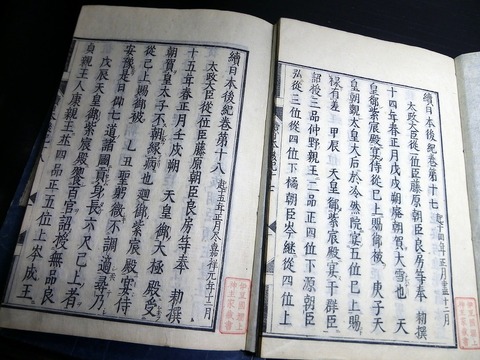 續日本後紀卷第十七 起十四年正月盡十二月
太政大臣從一位臣藤原朝臣良房等奉 勅撰
十四年春正月戊戌朔廢朝賀大雪也 天
皇御紫宸殿宴侍從已上賜御被 庚子天
皇朝覲太皇大后於冷然院宴五位已上賜
祿有差 甲辰天皇御紫宸殿宴于群臣
詔授三品仲野親王二品正四位下源朝臣
弘從三位從四位下橘朝臣岑継從四位上
續日本後紀卷第十八 起十五年正月尽嘉祥元年十二月
太政大臣從一位臣藤原朝臣良房等奉 勅撰
十五年春正月壬戌朔 天皇御大極殿受
朝賀皇太子不朝緣病也廻御紫宸殿宴侍
從已上賜御被 乙丑聖躬微不調適尋乃
安豫是日仰七道諸國貢身長六尺已上者
戊辰天皇御紫宸殿饗百官詔授無品良
貞親王人康親王並四品正五位上岑成王